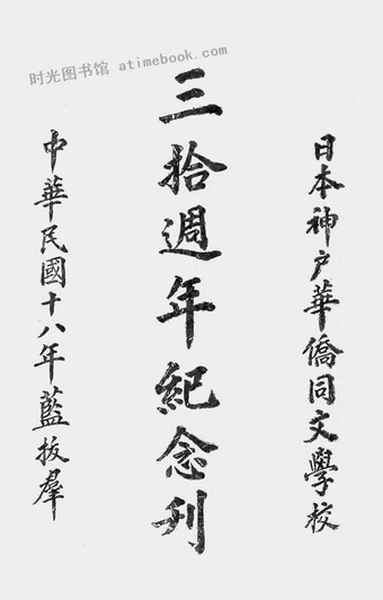 时光图书馆 atimebook.com
日本神户華僑同文學校
三拾週年紀念刊
中華民國十八年藍拔羣